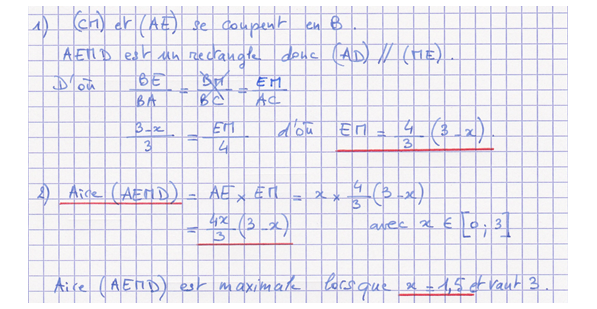 1) (CM) et (AE) se coupent en B.
AEMD est un rectangle donc (AD) // (ME).
D'où BE/BA = BM/BC = EM/AC
3-x/3 = EM/4 d'où EM = 4/3 (3-x).
2) Aire (AEMD) = AE × EM = x × 4/3 (3-x)
= 4x/3 (3-x) avec x ∈ [0 ; 3]
Aire (AEMD) est maximale lorsque x = 1,5 et vaut 3.